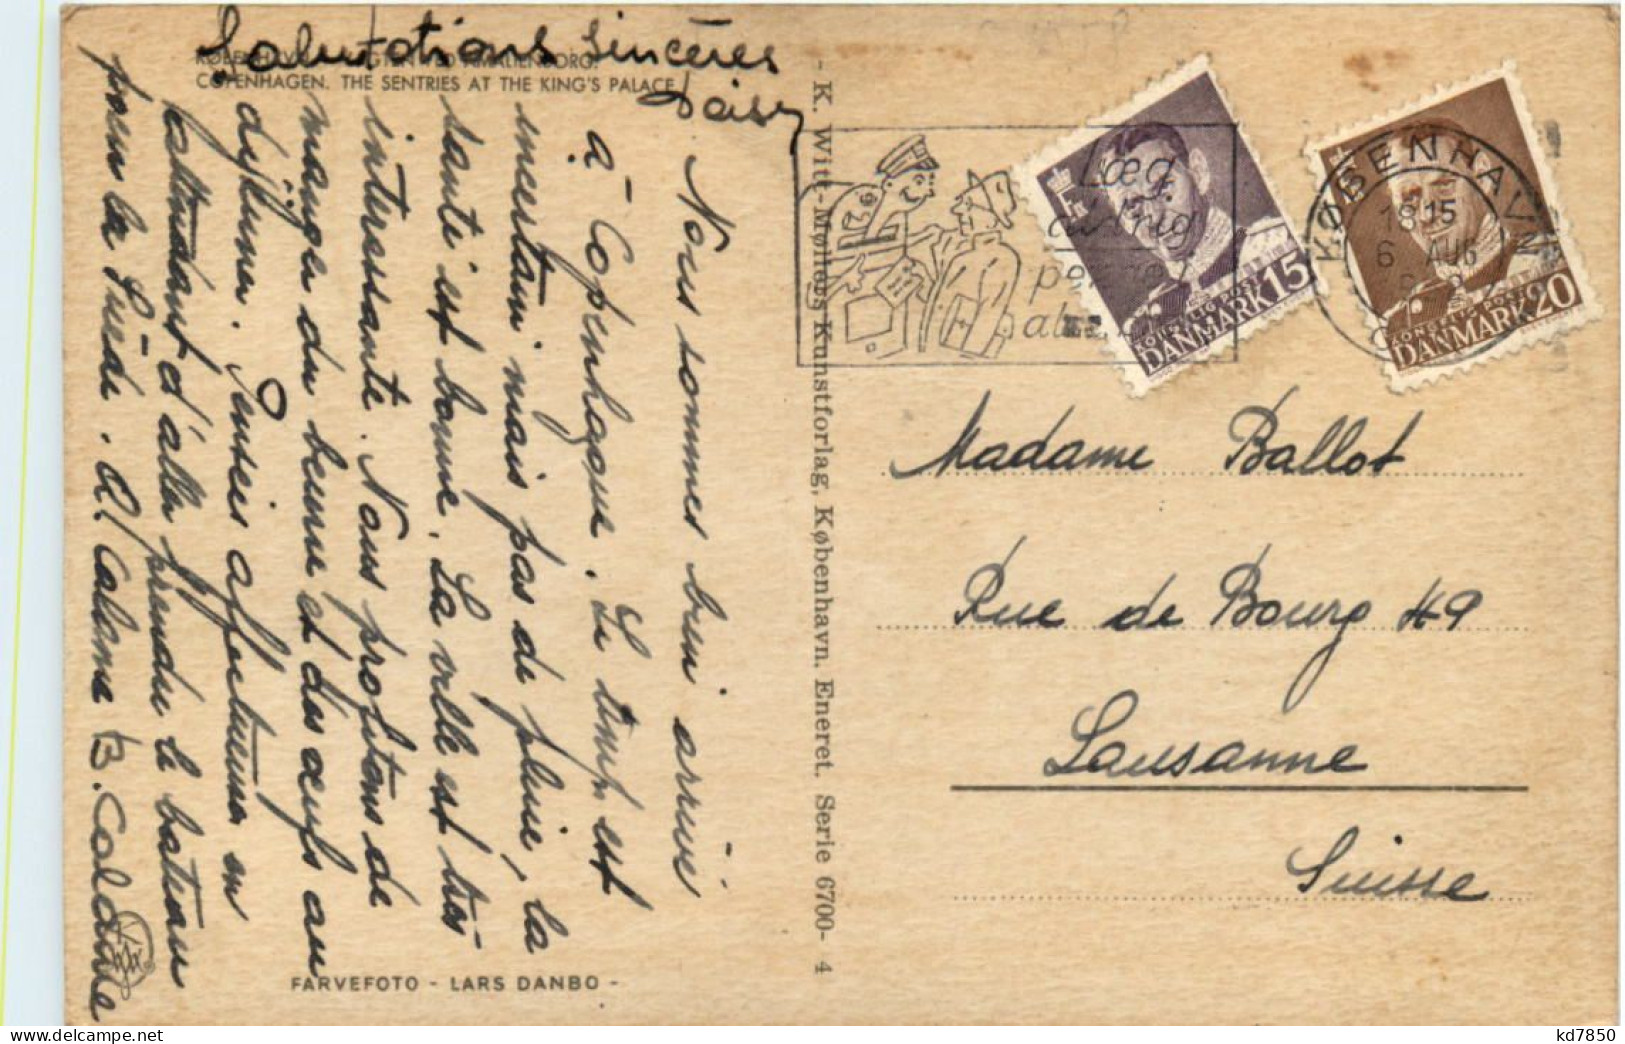 Salutations sincères
Daisy
KØBENHAVN. VAGTEN VED AMALIENBORG.
COPENHAGEN. THE SENTRIES AT THE KING'S PALACE
Nous sommes bien arrivé
à Copenhague. Le temps est
incertain mais pas de pluie, la
santé est bonne. La ville est très
intéressante. Nous profitons de
manger du beurre et des œufs au
déjeuner. Pensées affectueuses en
attendant d'aller prendre le bateau
pour la Suède. A. Calame B. Calame
FARVEFOTO - LARS DANBO -
- K. Witt-Møllers Kunstforlag, København. Eneret. Serie 6700- 4
Læg
aldrig
penge i
KØBENHAVN
18 15
6 AUG
DANMARK 15
DANMARK 20
Madame Ballot
Rue de Bourg 49
Lausanne
Suisse
kd7850